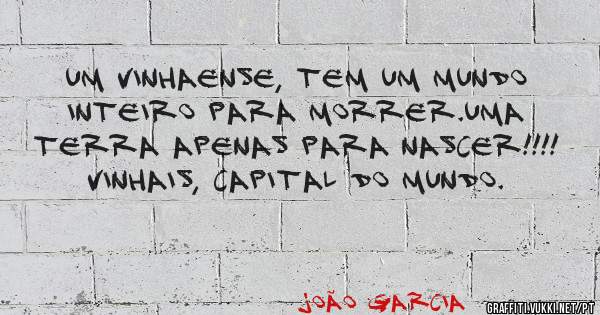 UM VINHAENSE, TEM UM MUNDO
INTEIRO PARA MORRER.UMA
TERRA APENAS PARA NASCER!!!!
VINHAIS, CAPITAL DO MUNDO.
JOÃO GARCIA
GRAFFITI.VUKKI.NET/PT